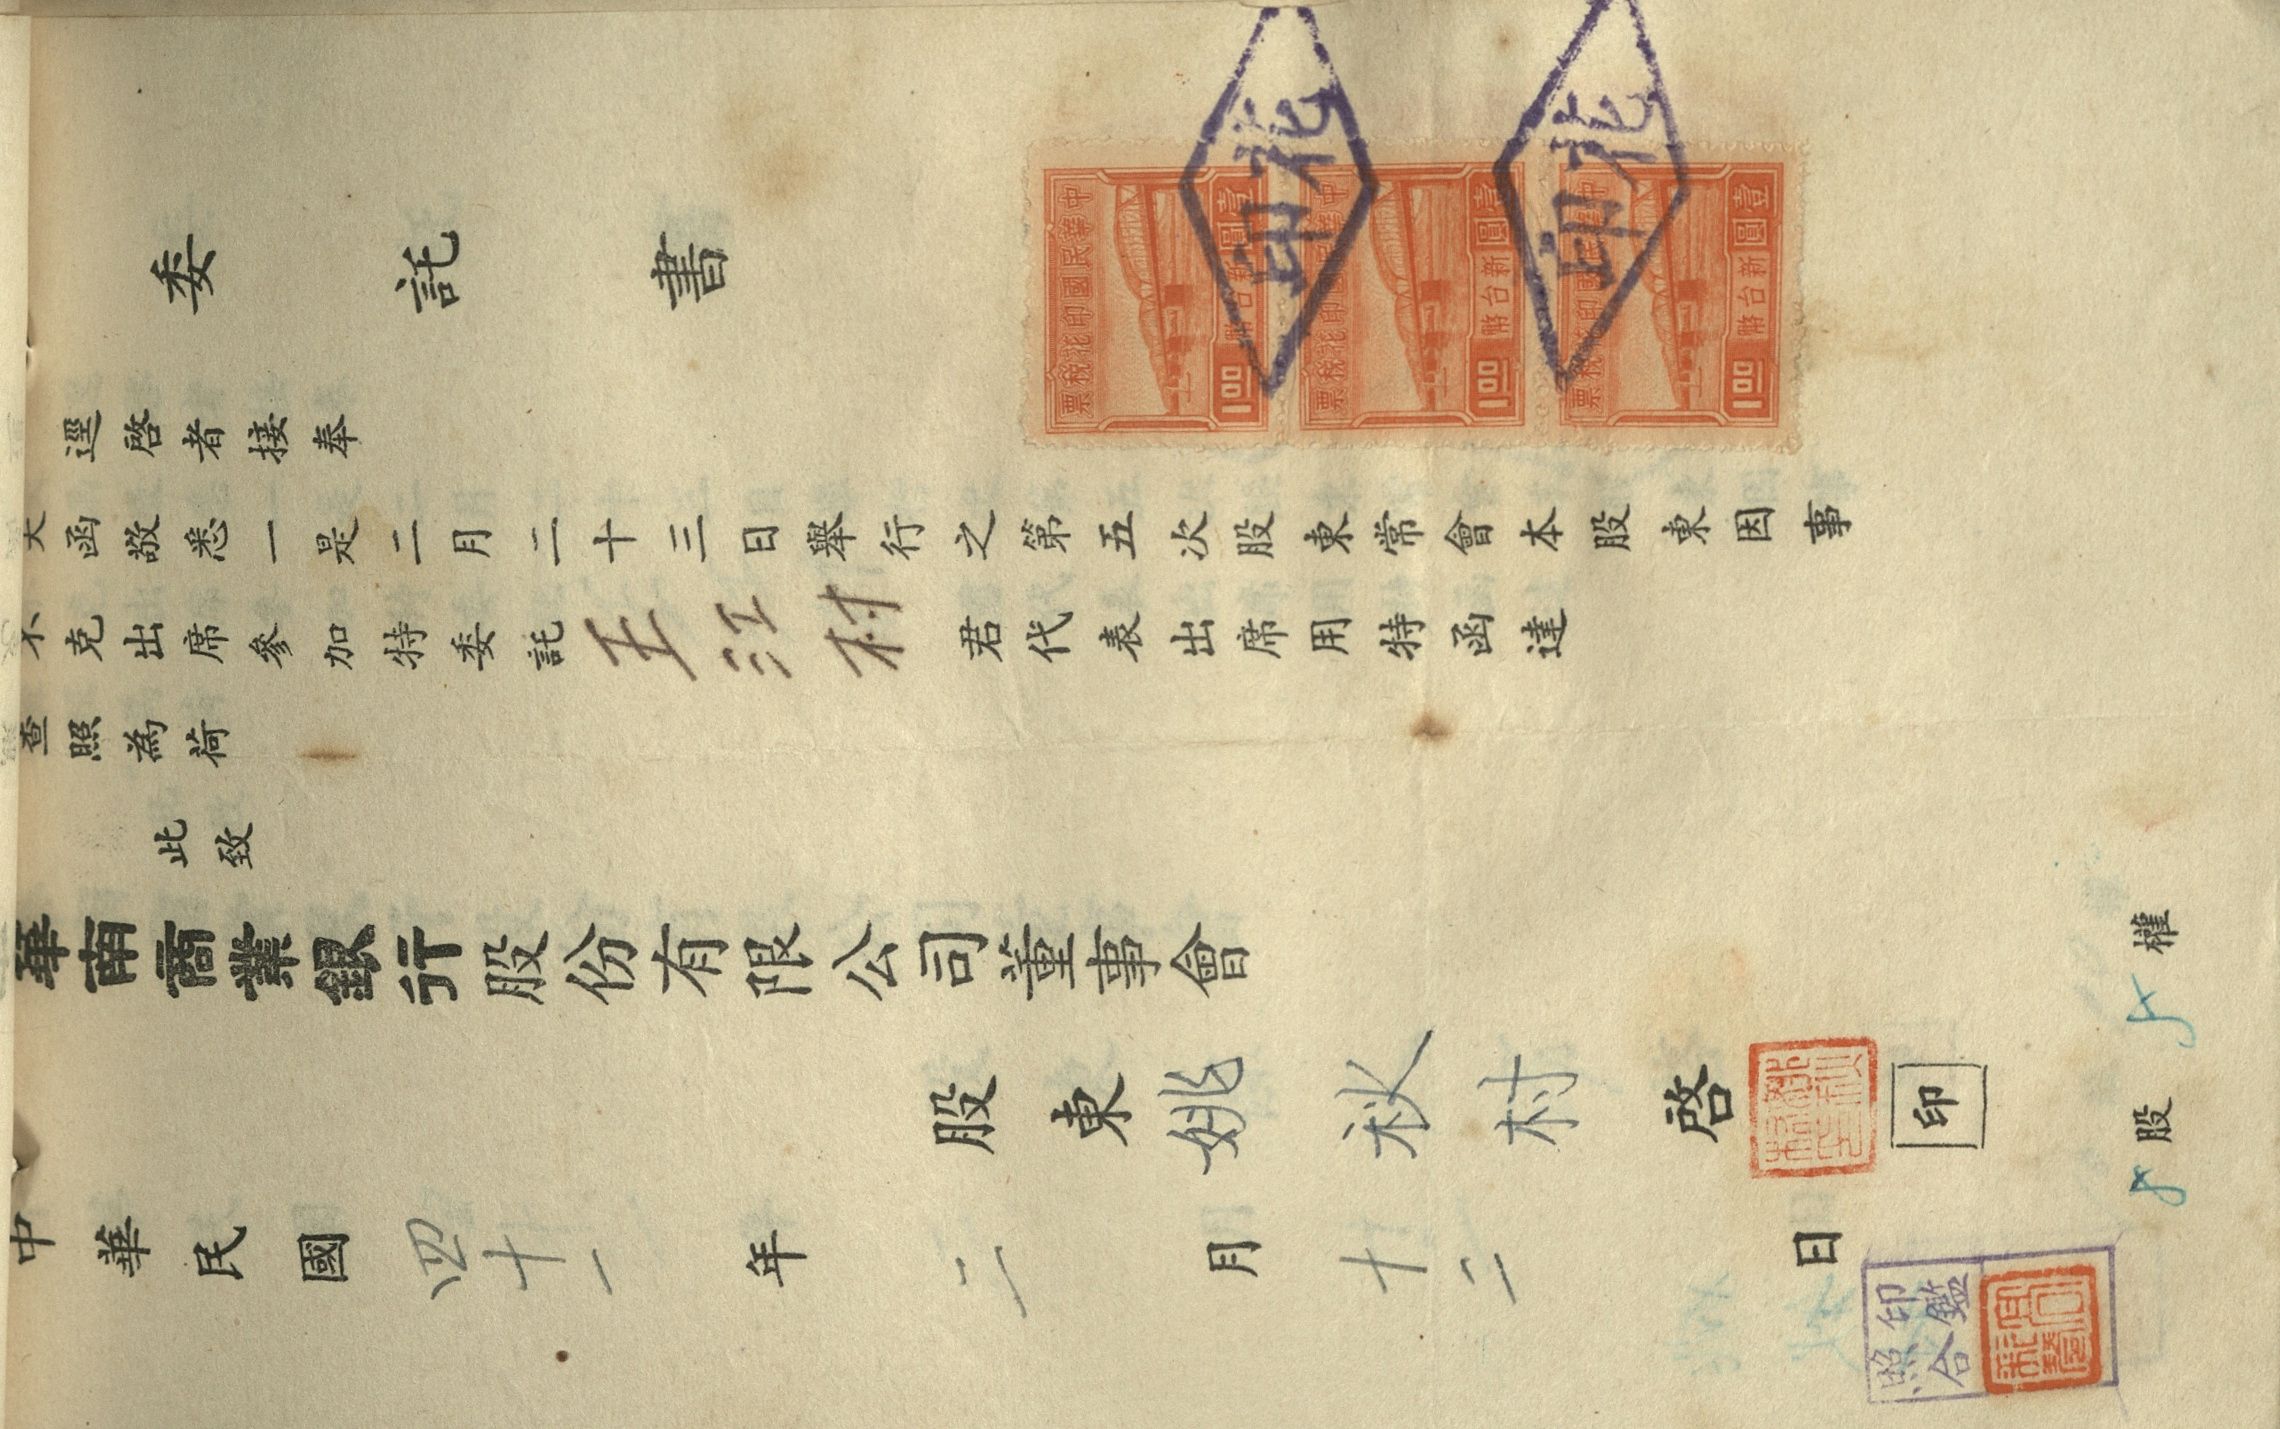 委託書
逕啓者接奉
大函敬悉一是二月二十三日舉行之第五次股東常會本股東因事
不克出席參加特委託王江村君代表出席用特函達
查照為荷
此致
華南商業銀行股份有限公司董事會
股東姚秋村啓
印
中華民國四十一年二月十二日
8股5權
中華民國印花稅票
壹圓新台幣
1.00
中華民國印花稅票
壹圓新台幣
1.00
中華民國印花稅票
壹圓新台幣
1.00
印花
印花
印鑑
照合